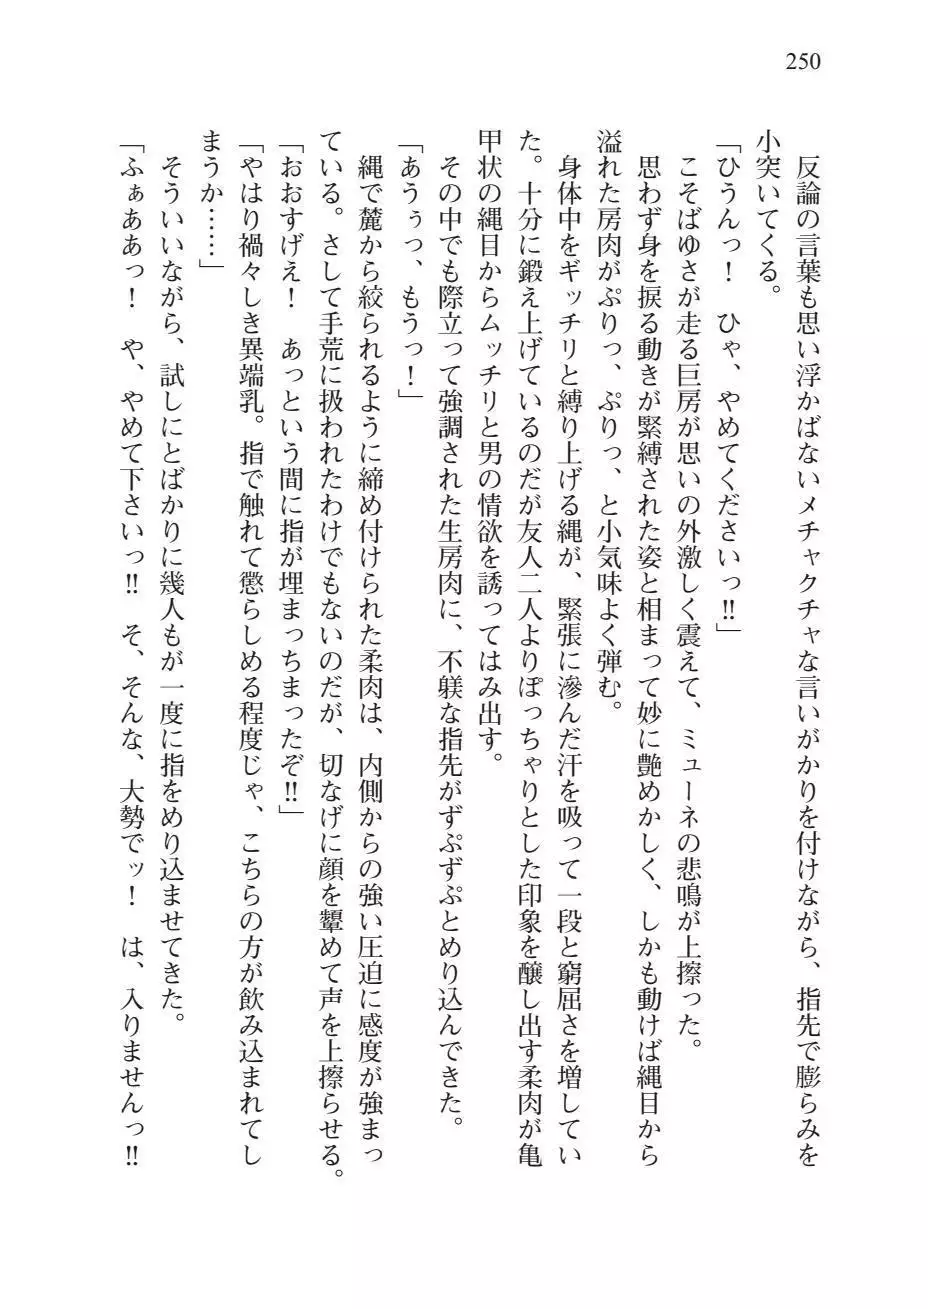 250
反論の言葉も思い浮かばないメチャクチャな言いがかりを付けながら、指先で膨らみを
小突いてくる。
「ひうんっ！　ひゃ、やめてくださいっ‼」
こそばゆさが走る巨房が思いの外激しく震えて、ミューネの悲鳴が上擦った。
思わず身を捩る動きが緊縛された姿と相まって妙に艶めかしく、しかも動けば縄目から
溢れた房肉がぷりっ、ぷりっ、と小気味よく弾む。
身体中をギッチリと縛り上げる縄が、緊張に滲んだ汗を吸って一段と窮屈さを増してい
た。十分に鍛え上げているのだが友人二人よりぽっちゃりとした印象を醸し出す柔肉が亀
甲状の縄目からムッチリと男の情欲を誘ってはみ出す。
その中でも際立って強調された生房肉に、不躾な指先がずぷずぷとめり込んできた。
「あうぅっ、もうっ！」
縄で麓から絞られるように締め付けられた柔肉は、内側からの強い圧迫に感度が強まっ
ている。さして手荒に扱われたわけでもないのだが、切なげに顔を顰めて声を上擦らせる。
「おおすげえ！　あっという間に指が埋まっちまったぞ‼」
「やはり禍々しき異端乳。指で触れて懲らしめる程度じゃ、こちらの方が飲み込まれてし
まうか……」
そういいながら、試しにとばかりに幾人もが一度に指をめり込ませてきた。
「ふぁああっ！　や、やめて下さいっ‼　そ、そんな、大勢でッ！　は、入りませんっ‼